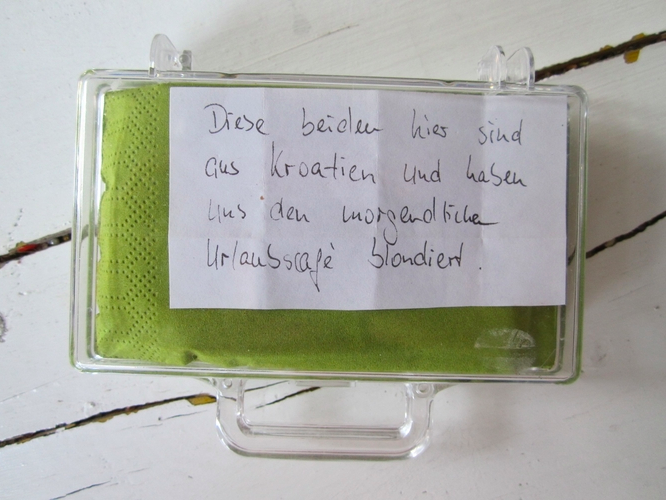 Diese beiden hier sind
aus Kroatien und haben
uns den morgendlichen
Urlaubscafé blondiert.